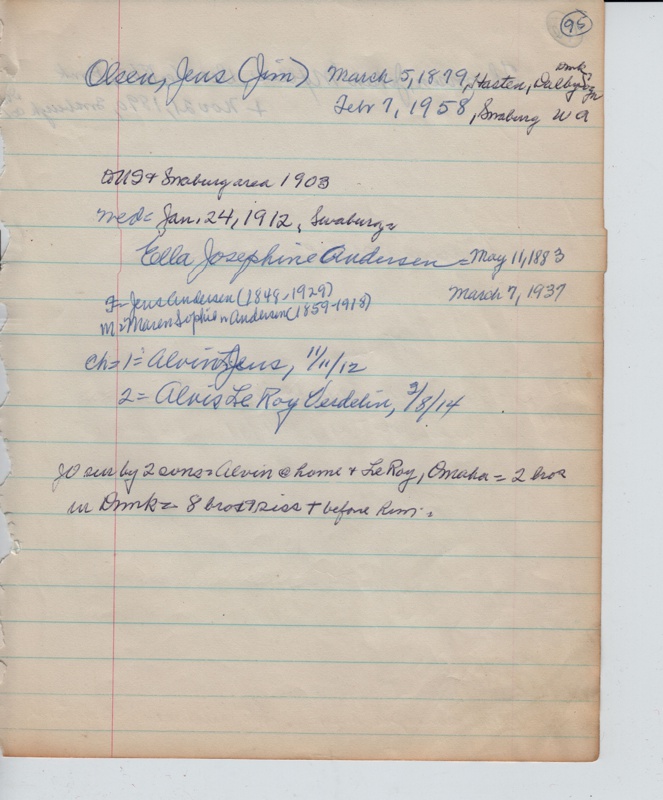 95
Olsen, Jens (Jim) March 5, 1879, Hasten, Dalby
Febr 7, 1958, Swaburg
to US & Swaburg area 1903
med= Jan. 24, 1912, Swaburg=
Ella Josephine Andersen = May 11, 1883
March 7, 1937
f= Jens Andersen (1849-1929)
m= Maren Sophie n Andersen (1859-1918)
ch= 1= Alvin Jens, 11/11/12
2= Alvis Le Roy Verdelin, 2/8/14
JO sur by 2 sons= Alvin @ home & Le Roy, Omaha = 2 bros
in Dmk= 8 bros & siss + before him.